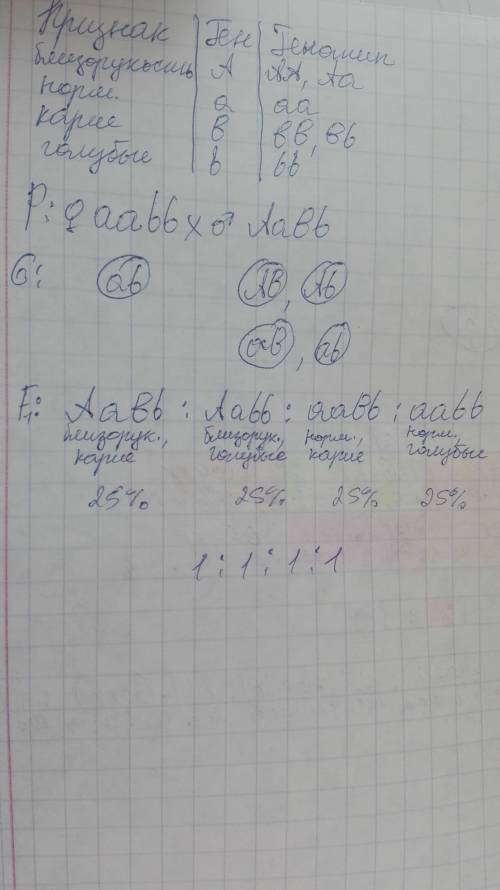 Признак | Ген | Генотип
близорукость | А | АА, Аа
норм. | а | аа
карие | В | ВВ, Вb
голубые | b | bb
P: ♀ aabb x ♂ AaBb
G: ab AB, Ab
aB, ab
F₁: AaBb : Aabb : aaBb : aabb
близорук., близорук., норм., норм.,
карие голубые карие голубые
25% 25% 25% 25%
1 : 1 : 1 : 1